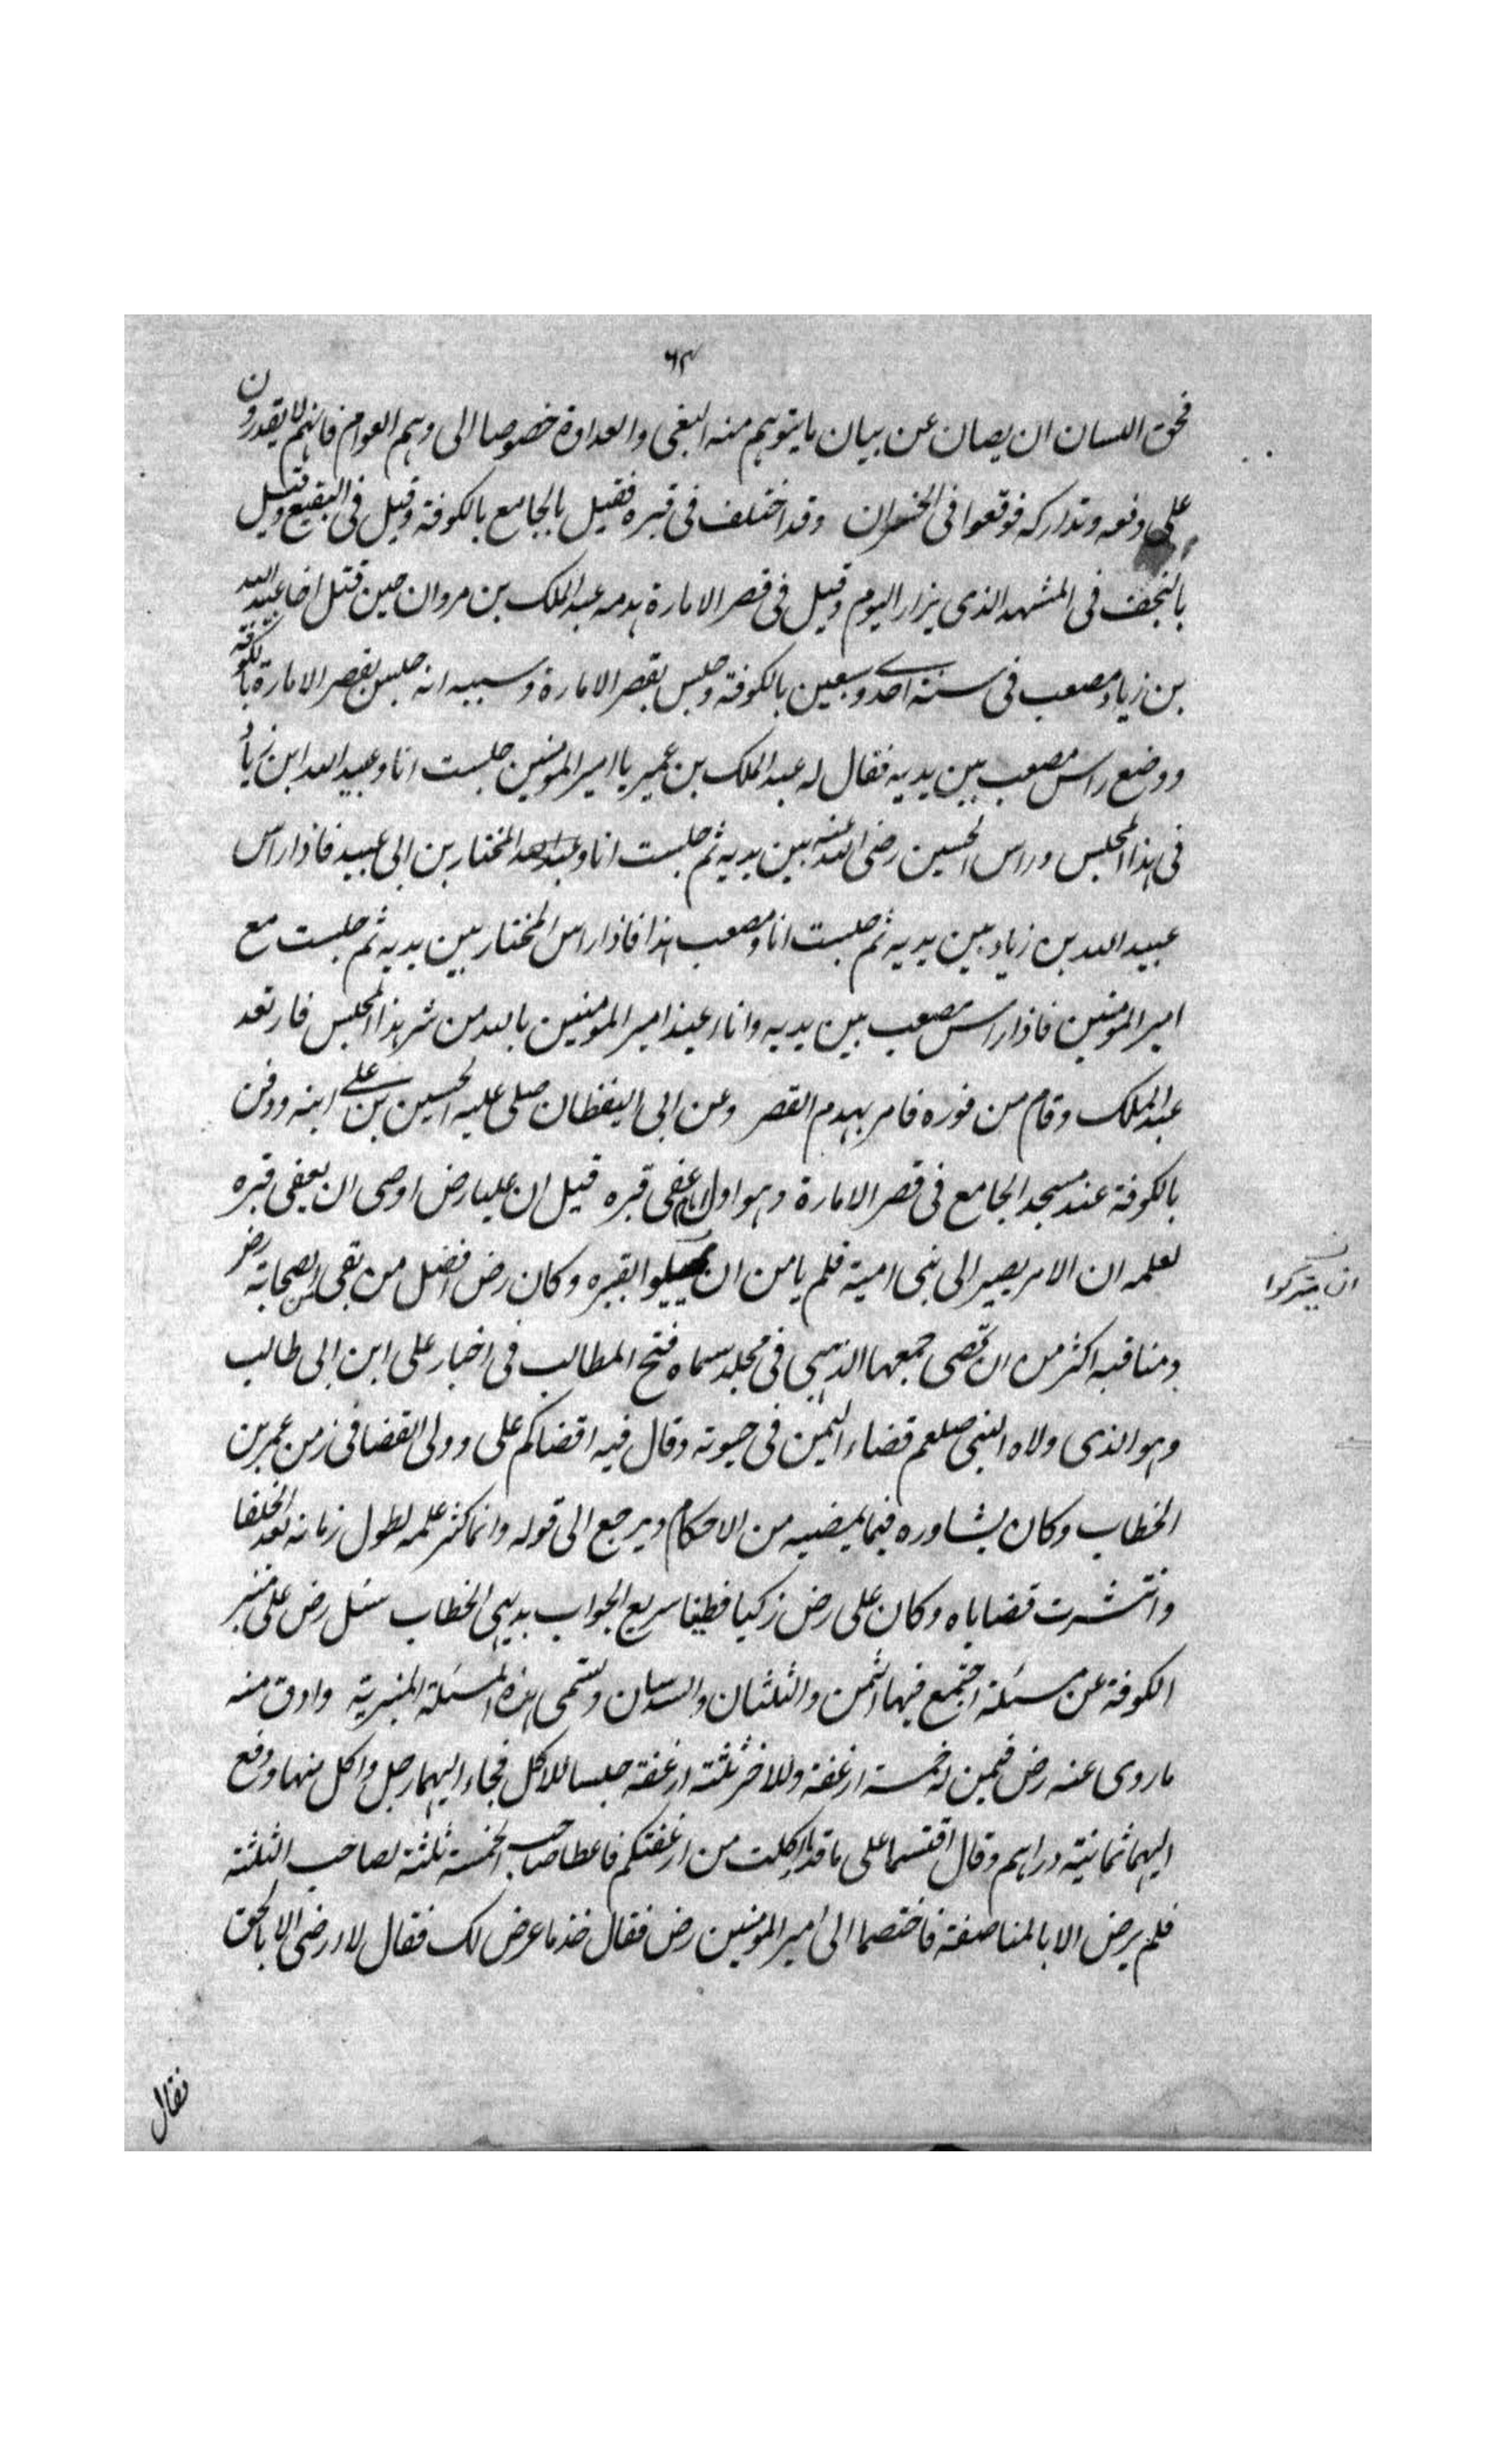 ٦٣
فحق اللسان ان يصان عن بيان ما يتوهم منه البغى والعداوة خصوصا الى وهم العوام فانهم لا يقدرون
على دفعه وتداركه فوقعوا فى الخسران وقد اختلف فى قبره فقيل بالجامع بالكوفة وقيل فى البقيع وقيل
بالنجف فى المشهد الذى يزار اليوم وقيل فى قصر الامارة هدمه عبد الملك بن مروان حين قتل اخا عبيد الله
بن زياد مصعب فى سنة احدى وسبعين بالكوفة وجلس بقصر الامارة وسببه انه جلس بقصر الامارة بالكوفة
ووضع راس مصعب بين يديه فقال له عبد الملك بن عمير يا امير المومنين جلست انا وعبيد الله ابن زياد
فى هذا المجلس وراس الحسين رضى الله عنه بين يديه ثم جلست انا و المختار بن ابى عبيد فاذا راس
عبيد الله بن زياد بين يديه ثم جلست انا ومصعب هذا فاذا راس المختار بين يديه ثم جلست مع
امير المومنين فاذا راس مصعب بين يديه وانا اعيذ امير المومنين بالله من شر هذا المجلس فارتعد
عبد الملك وقام من فوره فامر بهدم القصر وعن ابى اليقظان صلى عليه الحسين بن على ابنه ودفن
بالكوفة عند مسجد الجامع فى قصر الامارة وهو اول امام عفى قبره قيل ان عليا رض اوصى ان يعفى قبره
لعلمه ان الامر يصير الى بنى امية فلم يامن ان يمثلوا بقبره وكان رض افضل من بقى من الصحابة رض
ان يتركوا
ومناقبه اكثر من ان تحصى جمعها الذهبى فى مجلد سماه فتح المطالب فى اخبار على ابن ابى طالب
وهو الذى ولاه النبى صلعم قضاء اليمن فى حيوته وقال فيه اقضاكم على وولى القضا فى زمن عمر بن
الخطاب وكان يشاوره فيما يمضيه من الاحكام ويرجع الى قوله وانما كثر علمه لطول زمانه بعد الخلفا
وانتشرت قضاياه وكان على رض زكيا فطينا سريع الجواب بديهى الخطاب سئل رض على منبر
الكوفة عن مسئلة اجتمع فيها الثمن والثلثان والسدسان وتسمى هذه المسئلة المنبرية وادق منه
ما روى عنه رض فيمن له خمسة ارغفة وللاخر ثلثة ارغفة جلسا للاكل فجاء اليهما رجل واكل منها ودفع
اليهما ثمانية دراهم وقال اقتسما على ما قد اكلت من ارغفتكم فاعطا صاحب الخمسة ثلثة لصاحب الثلثة
فلم يرض الا بالمناصفة فاختصما الى امير المومنين رض فقال خذ ما عرض لك فقال لا ارضى الا بالحق
فقال